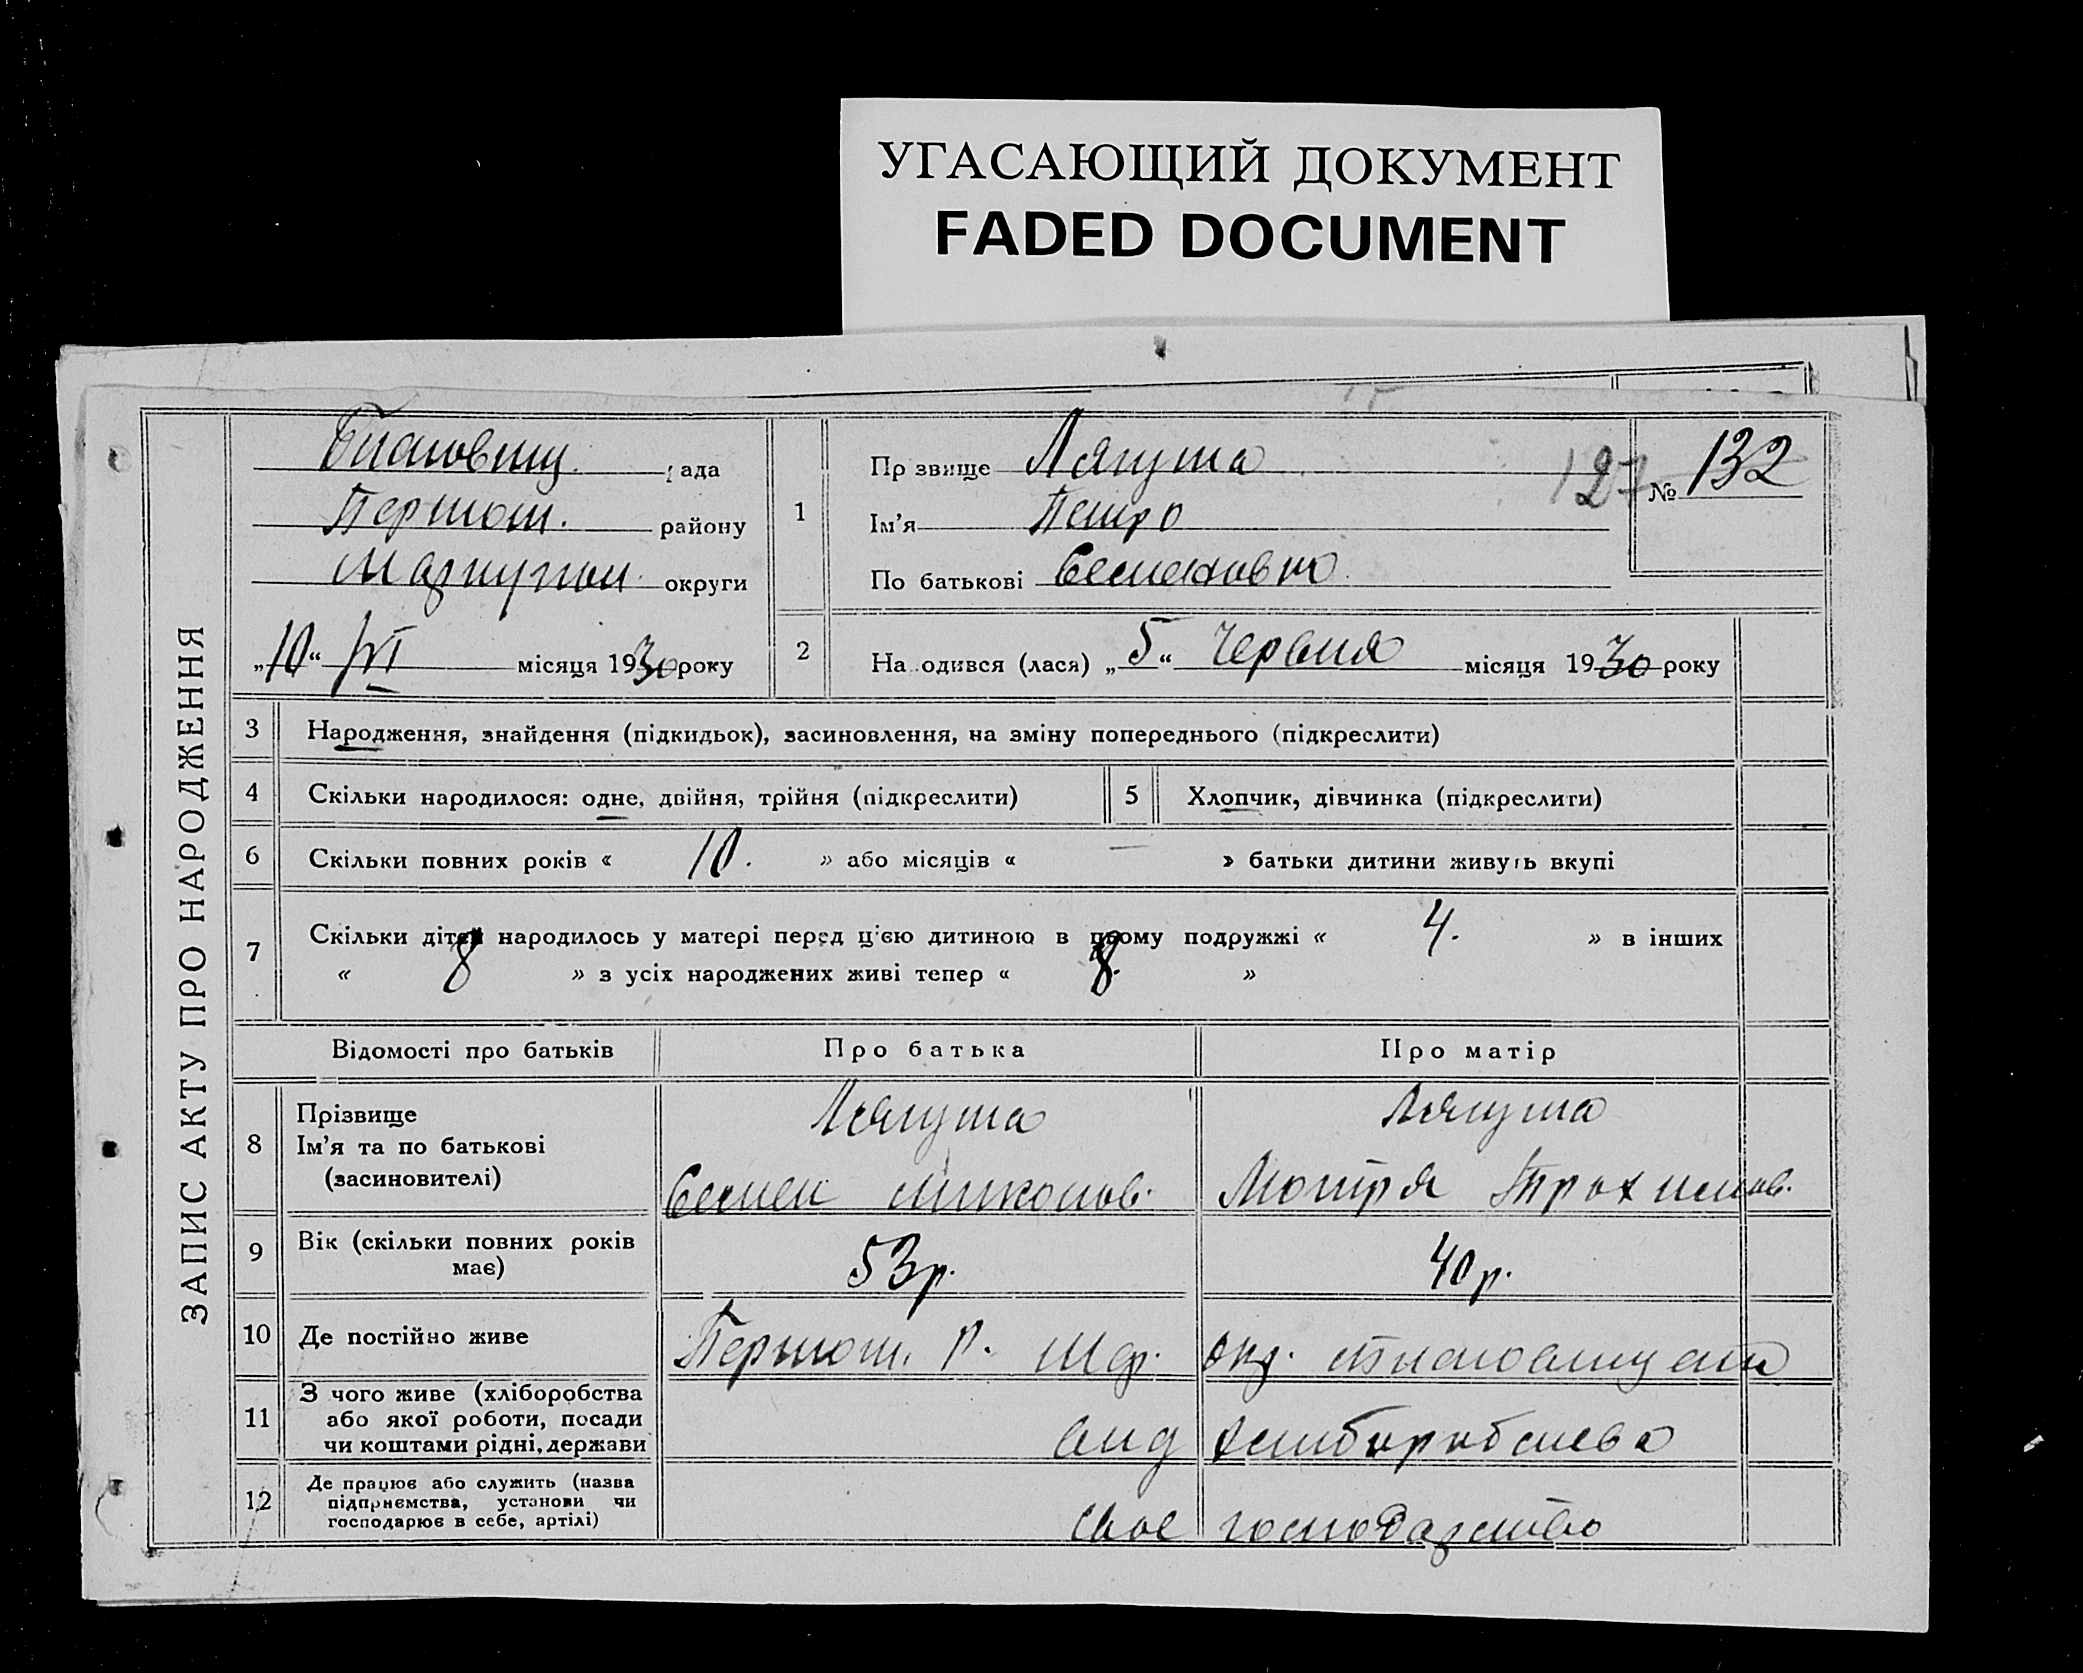 УГАСАЮЩИЙ ДОКУМЕНТ
FADED DOCUMENT
ЗАПИС АКТУ ПРО НАРОДЖЕННЯ
рада
Першот. району
Маріупол. округи
„10“ VI місяця 1930 року
1
Прізвище Лягуша
Ім’я Петро
По батькові Семенович
127 № 132
2
Народився (лася) „5“ Червня місяця 1930 року
3 Народження, знайдення (підкидьок), засиновлення, на зміну попереднього (підкреслити)
4 Скільки народилося: одне, двійня, трійня (підкреслити)
5 Хлопчик, дівчинка (підкреслити)
6 Скільки повних років « 10. » або місяців « — » батьки дитини живуть вкупі
7 Скільки дітей народилось у матері перед цією дитиною в цьому подружжі « 4. » в інших
« 8 » з усіх народжених живі тепер « 8. »
Відомості про батьків Про батька Про матір
8 Прізвище
Ім’я та по батькові
(засновителі)
Лягуша Лягуша
Семен Миколов. Мотря Трохимов.
9 Вік (скільки повних років
має)
53р. 40р.
10 Де постійно живе
Першот. Р. Мар. окр.
11 З чого живе (хліборобства
або якої роботи, посади
чи коштами рідні, держави
від хліборобства
12 Де працює або служить (назва
підприємства, установи чи
господарює в себе, артілі)
своє господарство